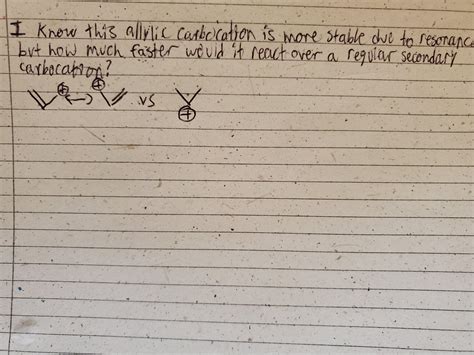 I know this allylic carbocation is more stable due to resonance
but how much faster would it react over a regular secondary
carbocation?
⊕ ⊕
vs
⊕